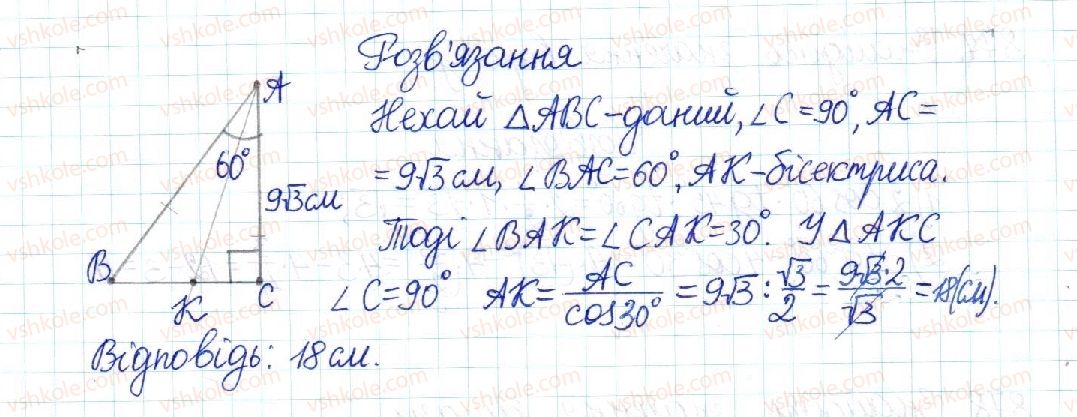 Розв'язання
Нехай △ABC-даний, ∠C=90°, AC=
=9√3 см, ∠BAC=60°, AK-бісектриса.
Тоді ∠BAK=∠CAK=30°. У △AKC
∠C=90° AK=AC/cos30° =9√3:√3/2=9√3·2/√3=18(см).
Відповідь: 18 см.
A
60°
9√3 см
B
K
C
vshkole.com